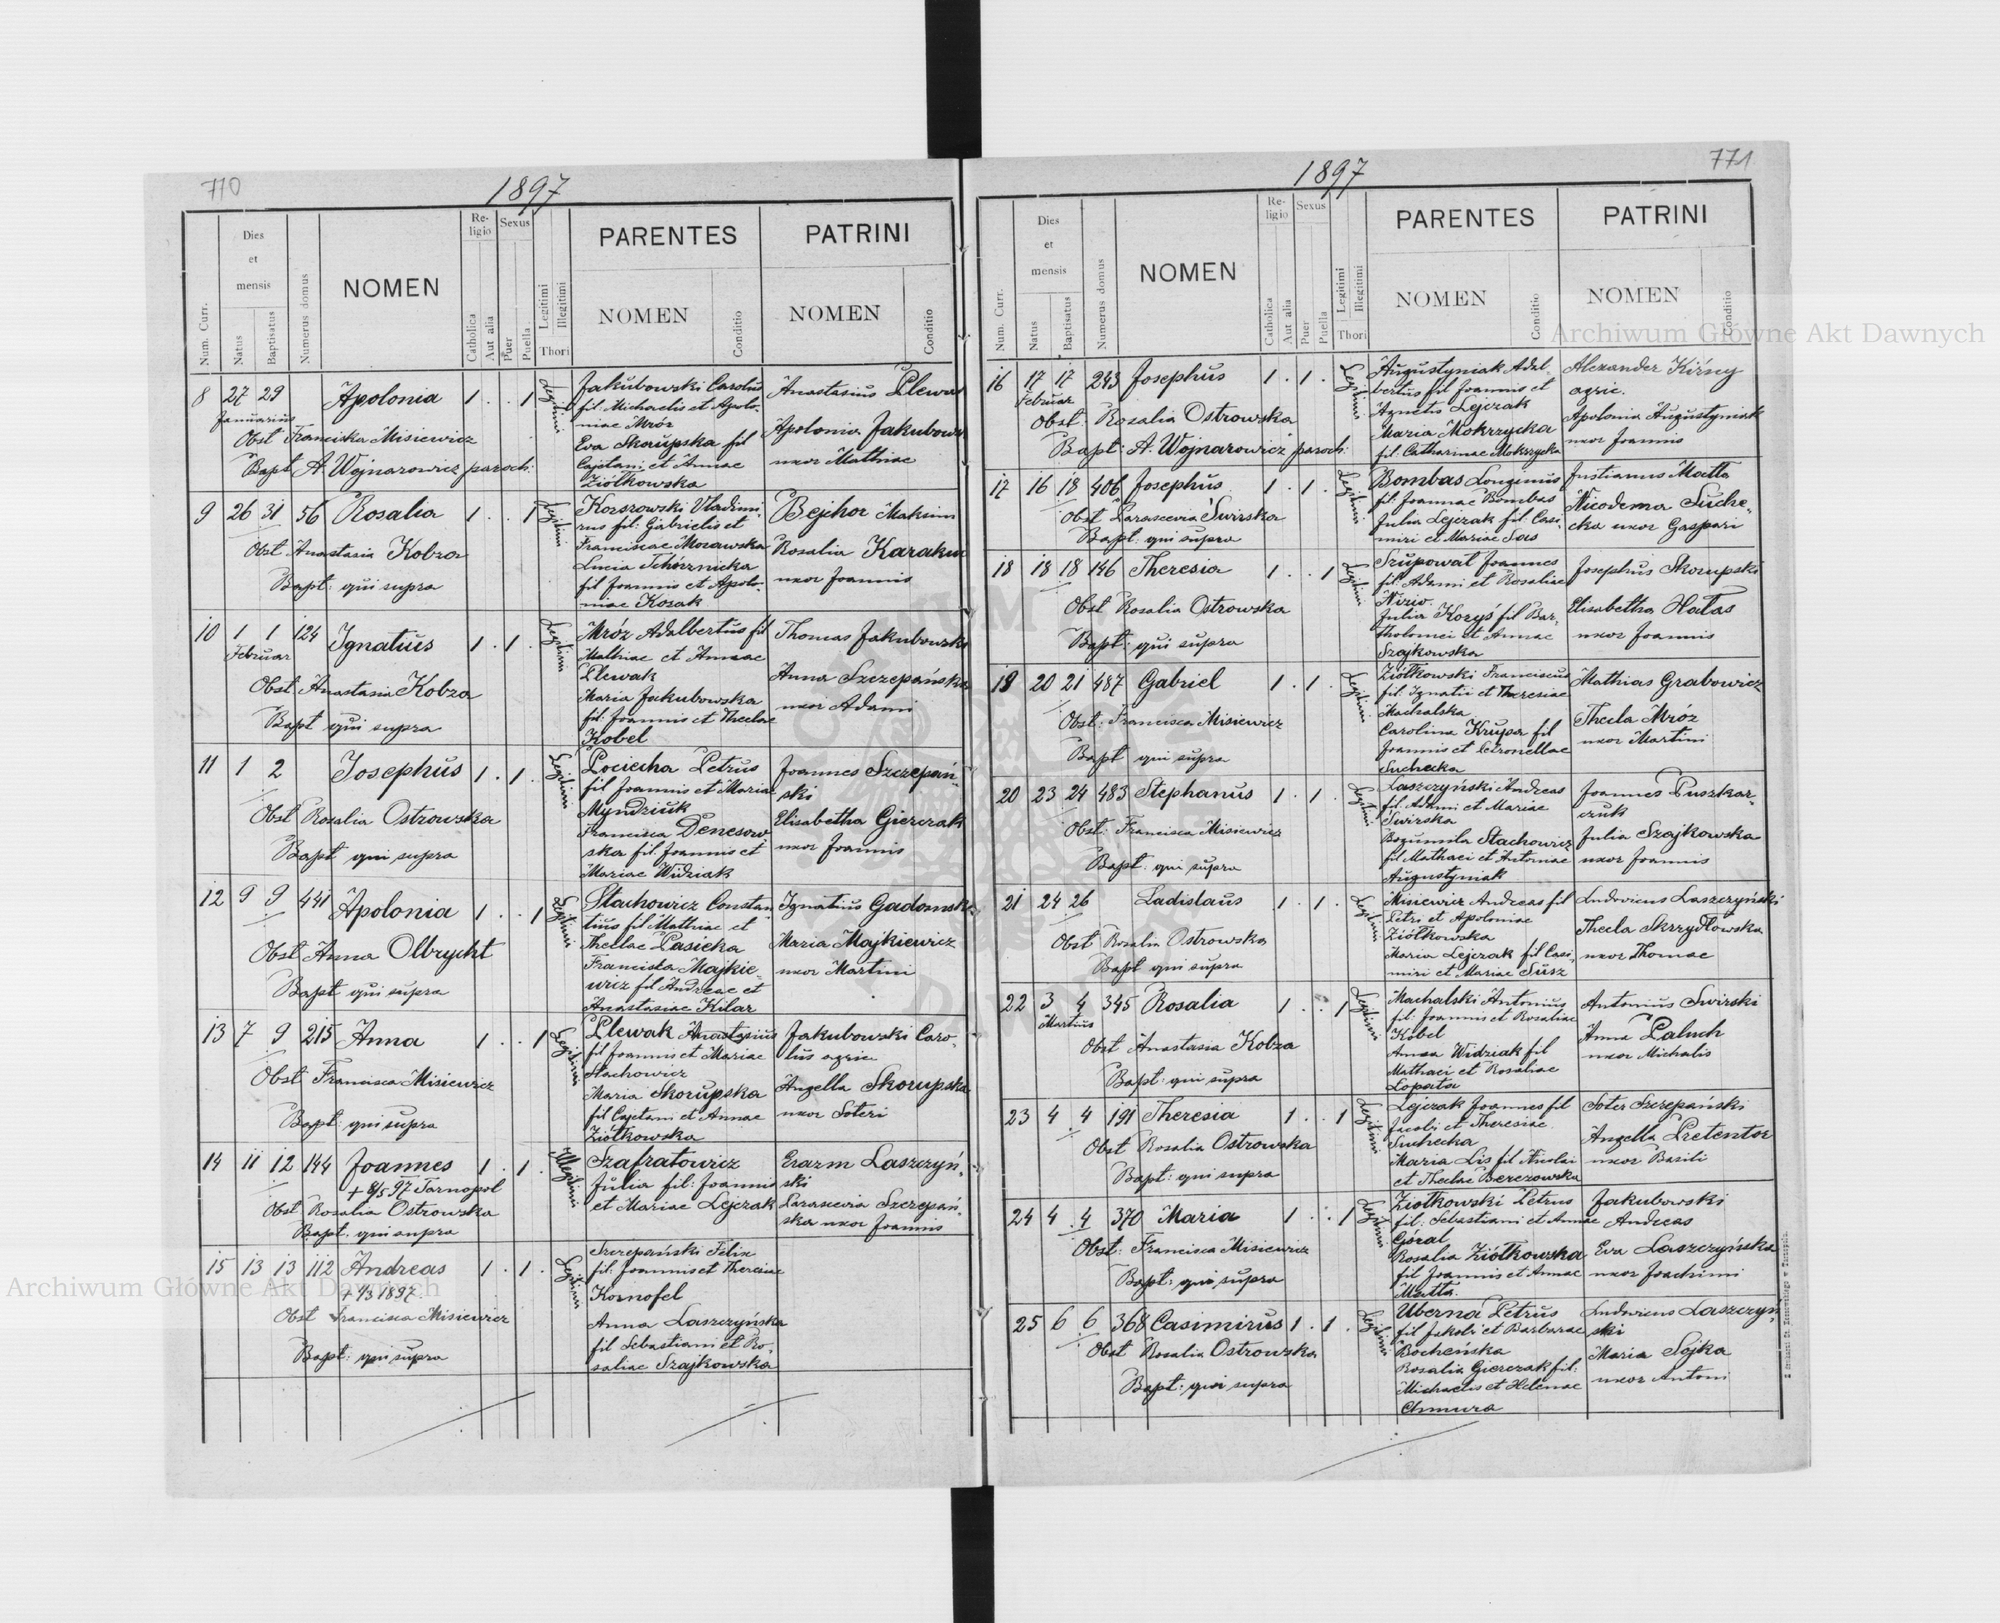 710
1897
Num. Curr.
Dies et mensis
Natus
Baptisatus
Numerus domus
NOMEN
Religio
Catholica
Aut alia
Sexus
Puer
Puella
Legitimi
Illegitimi
Thori
PARENTES
NOMEN
Conditio
PATRINI
NOMEN
Conditio
8 27 29 Apolonia 1 . . 1 Legitimi
Januarius
Obst Franciska Misiewicz
Bapt A Wojnarowicz paroch:
Jakubowski Carolus
fil. Michaelis et Apolo-
niae Mróz
Eva Skorupska fil
Cajetani et Annae
Ziółkowska
Anastasius Plewak
Apolonia Jakubows
uxor Mathiae
9 26 31 56 Rosalia 1 . . 1 Legitimi
Obst Anastasia Kobza
Bapt: qui supra
Vladimi-
rus fil: Gabrielis et
Franciscae
Lucia
fil Joannis et Apolo-
niae Kozak
Bejhor Maksim
Rosalia
uxor Joannis
10 1 1 124 Ignatius 1 . 1 . Legitimi
Februar
Obst Anastasia Kobza
Bapt qui supra
Mróz Adalbertus fil
Mathiae et Annae
Plewak
Maria Jakubowska
fil: Joannis et Theclae
Kobel
Thomas Jakubowski
Anna Szczepańska
uxor Adami
11 1 2 Josephus 1 . 1 . Legitimi
Obst Rosalia Ostrowska
Bapt qui supra
Pociecha Petrus
fil Joannis et Mariae
Myndziuk
Francisca Denesow-
ska fil: Joannis et
Mariae Widziak
Joannes Szczepań-
ski
Elisabetha Gierczak
uxor Joannis
12 9 9 441 Apolonia 1 . . 1 Legitimi
Obst Anna Olbrycht
Bapt qui supra
Stachowicz Constan-
tius fil Mathiae et
Theclae Pasieka
Franciska Majkie-
wicz fil Andreae et
Anastasiae Kilar
Ignatius Gadomski
Maria Majkiewicz
uxor Martini
13 7 9 215 Anna 1 . . 1 Legitimi
Obst Francisca Misiewicz
Bapt: qui supra
Plewak Anastasius
fil Joannis et Mariae
Stachowicz
Maria Skorupska
fil Cajetani et Annae
Ziółkowska
Jakubowski Caro-
lus agric
Angella Skorupska
uxor Soteri
14 11 12 144 Joannes 1 . 1 . Illegitimi
+ 8/5 97 Tarnopol
Obst Rosalia Ostrowska
Bapt. qui supra
Szafratowicz
Julia fil: Joannis
et Mariae Lejczak
Erazm Laszczyń-
ski
Parascevia Szczepań-
ska uxor Joannis
15 13 13 112 Andreas 1 . 1 . Legitimi
1897.
Obst Francisca Misiewicz
Bapt: qui supra
Szczepański Felix
fil: Joannis et Theresiae
Kornofel
Anna Laszczyńska
fil Sebastiani et Ro-
saliae Szajkowska
771
1897
Num. Curr.
Dies et mensis
Natus
Baptisatus
Numerus domus
NOMEN
Religio
Catholica
Aut alia
Sexus
Puer
Puella
Legitimi
Illegitimi
Thori
PARENTES
NOMEN
Conditio
PATRINI
NOMEN
Conditio
16 17 17 243 Josephus 1 . 1 . Legitimi
Februar
Obst Rosalia Ostrowska
Bapt: A. Wojnarowicz paroch:
Augustyniak Adal-
bertus fil Joannis et
Agnetis Lejczak
Maria Mokrzycka
fil. Catharinae Mokrzycka
Alexander Kirny
agric.
Apolonia Augustyniak
uxor Joannis
17 16 18 406 Josephus 1 . 1 . Legitimi
Obst Parascevia Swirska
Bapt: qui supra
Bombas Longinus
fil: Joannae Bombas
Julia Lejczak fil. Casi-
miri et Mariae Sas
Justianus Matta
Nicodema Suche-
cka uxor Gaspari
18 18 18 146 Theresia 1 . . 1 Legitimi
Obst Rosalia Ostrowska
Bapt: qui supra
Szupowat Joannes
fil: Adami et Rosaliae
Julia Koryś fil Bar-
tholomei et Annae
Szajkowska
Josephus Skorupski
Elisabetha Hałas
uxor Joannis
19 20 21 487 Gabriel 1 . 1 . Legitimi
Obst: Francisca Misiewicz
Bapt qui supra
Ziółkowski Franciscus
fil. Ignatii et Theresiae
Machalska
Carolina Krupa fil
Joannis et Petronellae
Suchecka
Mathias Grabowicz
Thecla Mróz
uxor Martini
20 23 24 483 Stephanus 1 . 1 . Legitimi
Obst: Francisca Misiewicz
Bapt. qui supra
Laszczyński Andreas
fil. Adami et Mariae
Swirska
Bogumila Stachowicz
fil Mathaei et Antoniae
Augustyniak
Joannes Puszkar-
czuk
Julia Szajkowska
uxor Joannis
21 24 26 Ladislaus 1 . 1 . Legitimi
Obst Rosalia Ostrowska
Bapt qui supra
Misiewicz Andreas fil
Petri et Apoloniae
Ziółkowska
Maria Lejczak fil Casi-
miri et Mariae Susz
Ludovicus Laszczyński
Thecla Skrzydłowska
uxor Thomae
22 3 4 345 Rosalia 1 . . 1 Legitimi
Martius
Obst Anastasia Kobza
Bapt: qui supra
Machalski Antonius
fil: Joannis et Rosaliae
Kobel
Anna Widziak fil
Mathaei et Rosaliae
Lopata
Antonius Swirski
Anna Paluch
uxor Michalis
23 4 4 191 Theresia 1 . . 1 Legitimi
Obst Rosalia Ostrowska
Bapt: qui supra
Lejczak Joannes fil
Jacobi et Theresiae
Suchecka
Maria Lis fil Nicolai
et Theclae Berezowska
Soter Szczepański
Angella Pretentor
uxor Basili
24 4 4 370 Maria 1 . . 1 Legitimi
Obst: Francisca Misiewicz
Bapt: qui supra
Ziółkowski Petrus
fil: Sebastiani et Annae
Góral
Rosalia Ziółkowska
fil Joannis et Annae
Matta.
Jakubowski
Andreas
Eva Laszczyńska
uxor Joachimi
25 6 6 368 Casimirus 1 . 1 . Legitimi
Obst Rosalia Ostrowska
Bapt: qui supra
Uberna Petrus
fil Jakobi et Barbarae
Bocheńska
Rosalia Gierczak fil:
Michaelis et Helenae
Chmura
Ludovicus Laszczyń-
ski
Maria Sojka
uxor Antoni
Archiwum Główne Akt Dawnych
Archiwum Główne Akt Dawnych